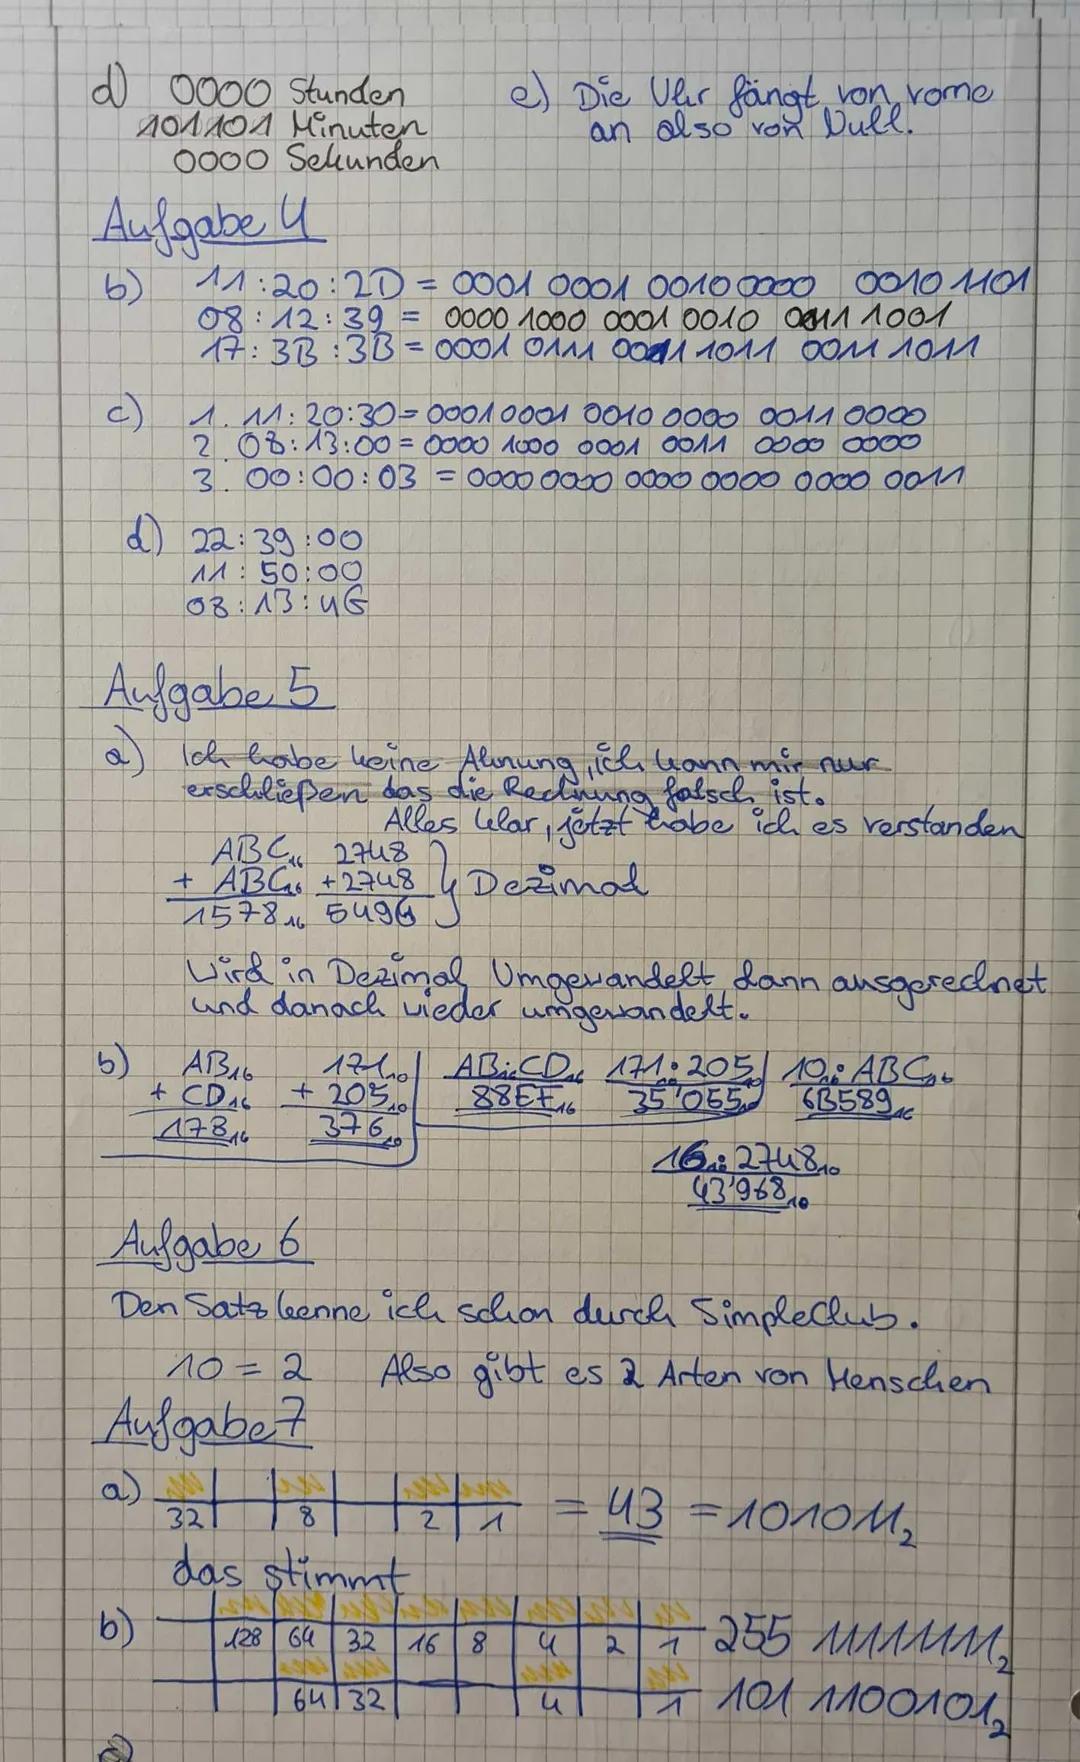 d) 0000 Stunden
101101 Minuten
0000 Sekunden
e) Die Uhr fängt von vorne
an also von Null.
Aufgabe 4
b) 11:20:2D = 0001 0001 0010 0000 0010 1101
08:12:39 = 0000 1000 0001 0010 0011 1001
17:3B:3B = 0001 0111 0011 1011 0011 1011
c) 1. 11:20:30 = 0001 0001 0010 0000 0011 0000
2. 08:13:00 = 0000 1000 0001 0011 0000 0000
3. 00:00:03 = 0000 0000 0000 0000 0000 0011
d) 22:39:00
11:50:00
08:13:4G
Aufgabe 5
a) Ich habe keine Ahnung, ich kann mir nur
erschließen das die Rechnung falsch ist.
Alles klar, jetzt habe ich es verstanden
ABC₁₆ 2748
+ ABC₁₆ +2748 } Dezimal
1578₁₆ 5496
Wird in Dezimal Umgewandelt dann ausgerechnet
und danach wieder umgewandelt.
b) AB₁₆ 171₁₀ AB₁₆·CD₁₆ 171₁₀·205₁₀ 10₁₆·ABC₁₆
+ CD₁₆ + 205₁₀ 88EF₁₆ 35'055₁₀ 6B589₁₆
178₁₆ 376₁₀
16₁₀·2748₁₀
43'968₁₀
Aufgabe 6
Den Satz kenne ich schon durch SimpleClub.
10 = 2 Also gibt es 2 Arten von Menschen
Aufgabe 7
a) 32 8 2 1 = 43 = 101011₂
das stimmt
b) 128 64 32 16 8 4 2 1 255 11111111₂
64 32 4 1 101 1100101₂